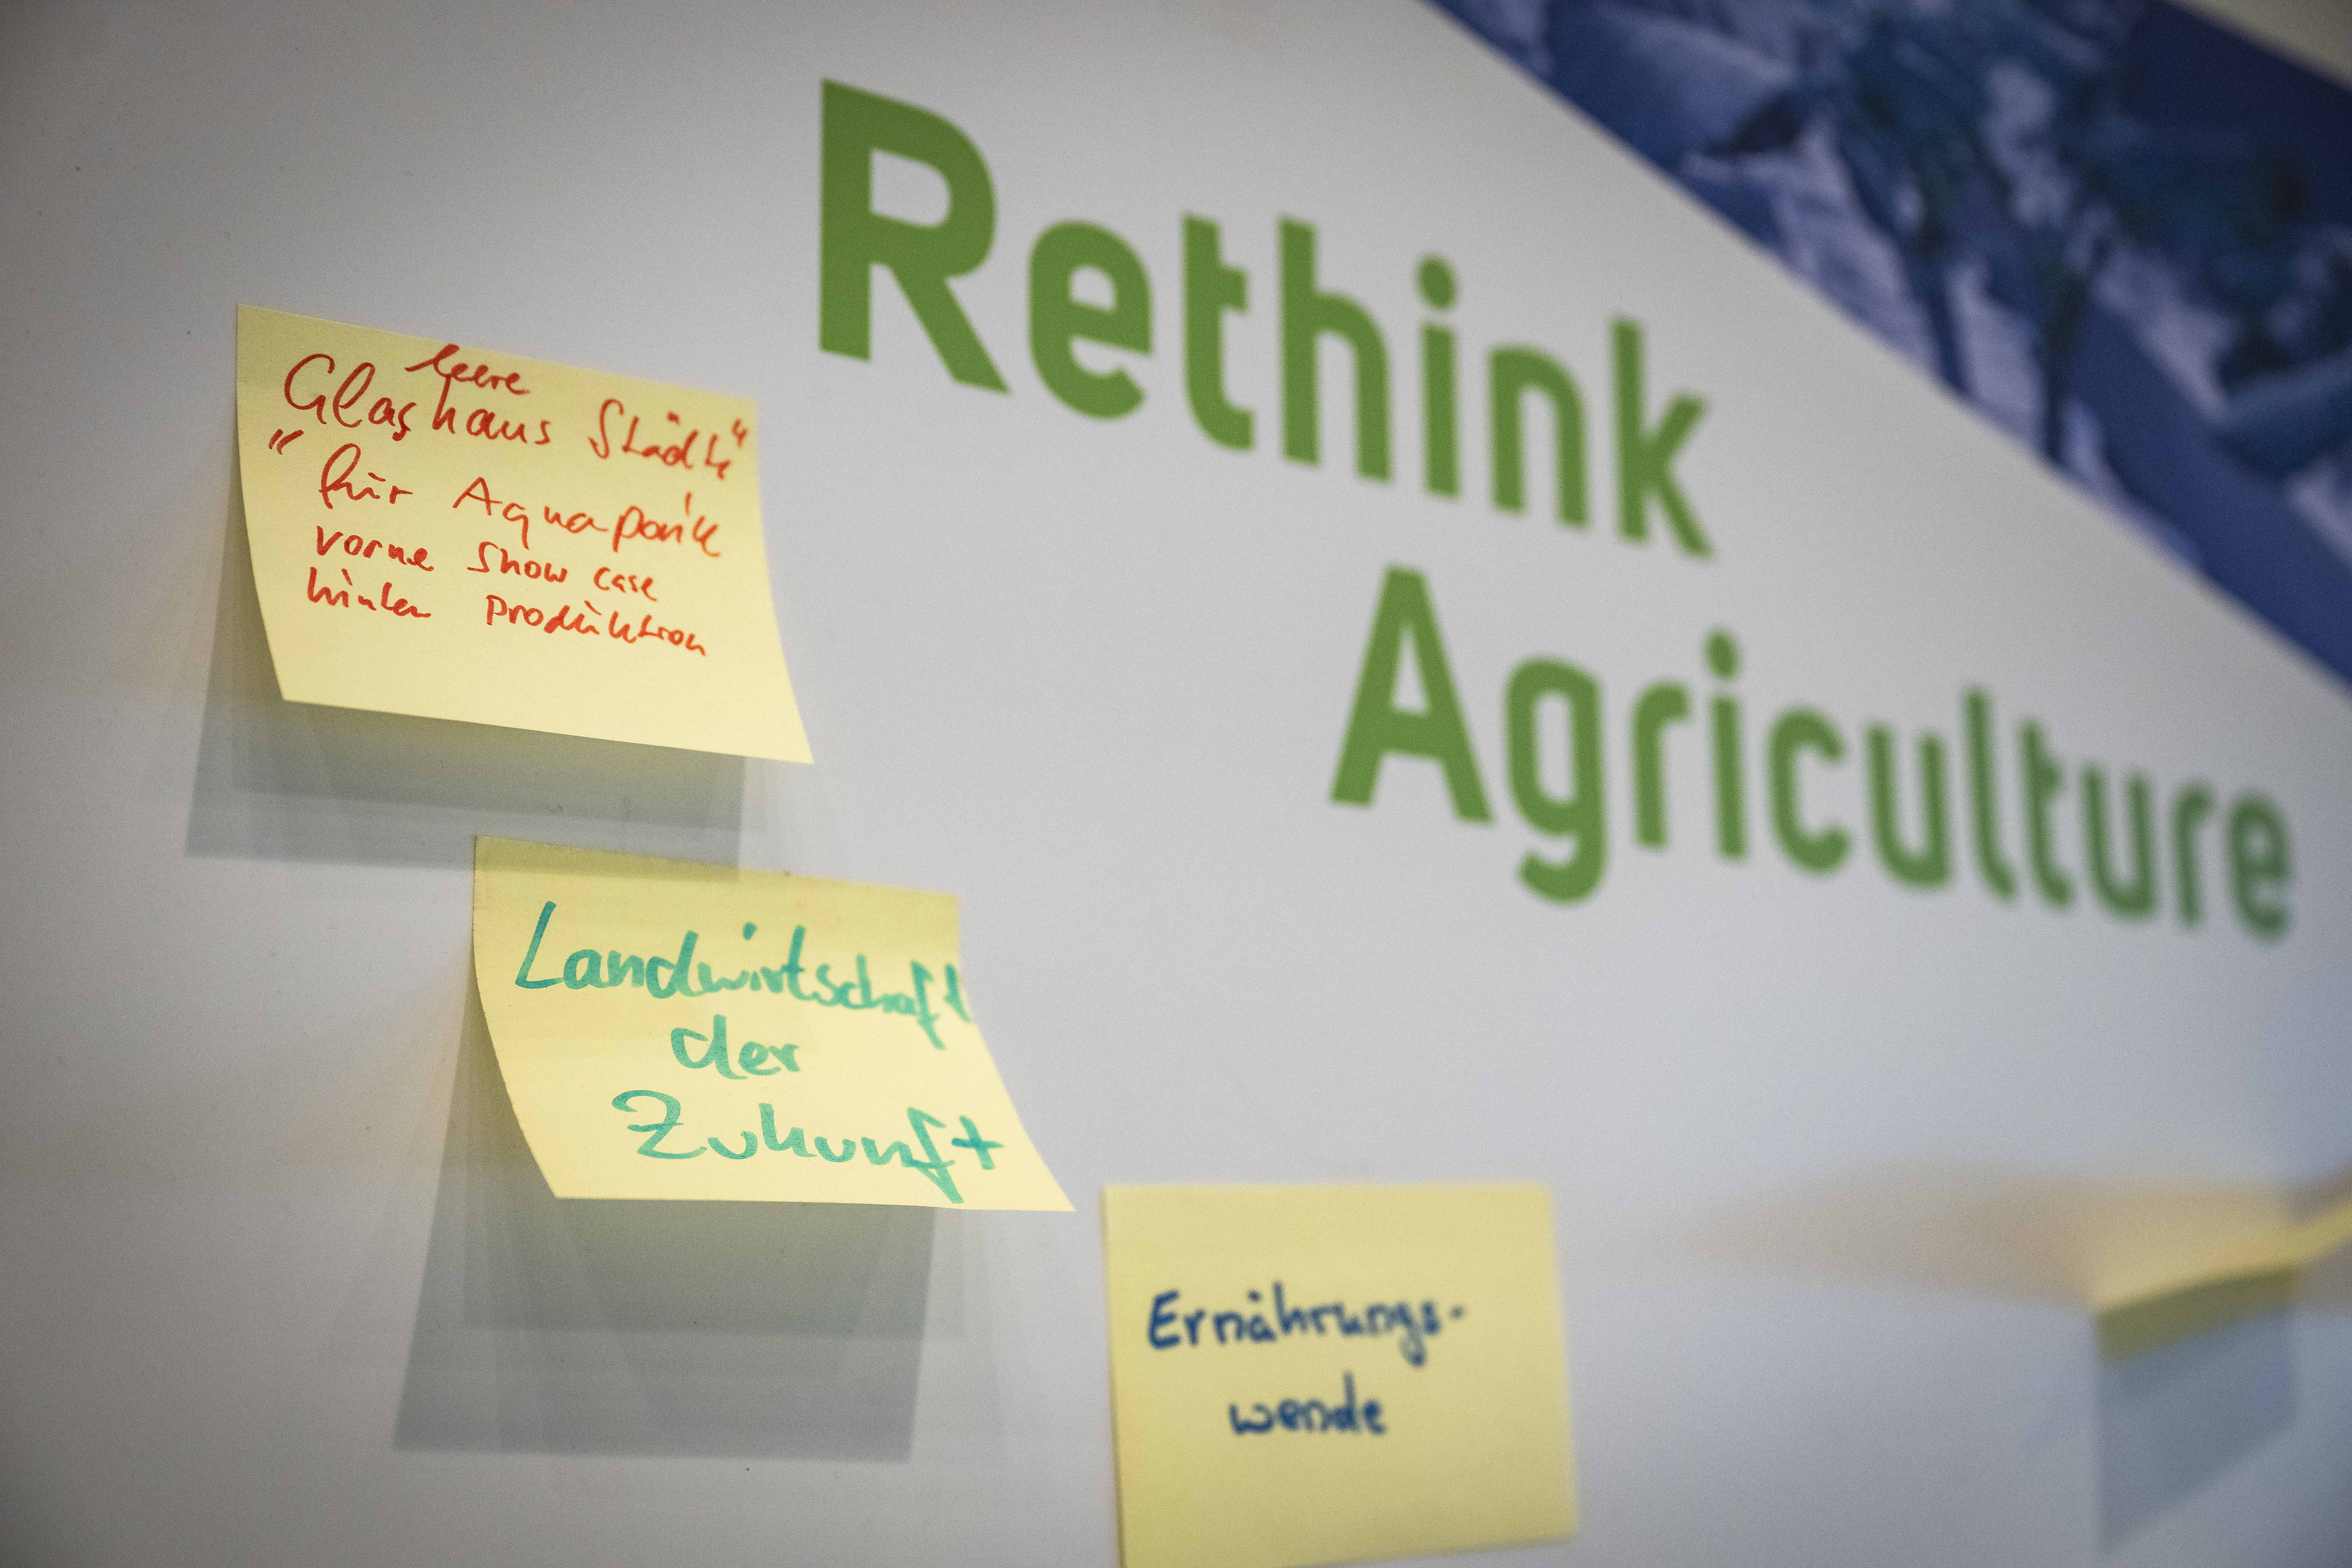 Rethink
Agriculture
leere
Glashaus Städte"
"für Aquaponik
vorne Show case
hinten Produktion
Landwirtschaft
der
Zukunft
Ernährungs-
wende